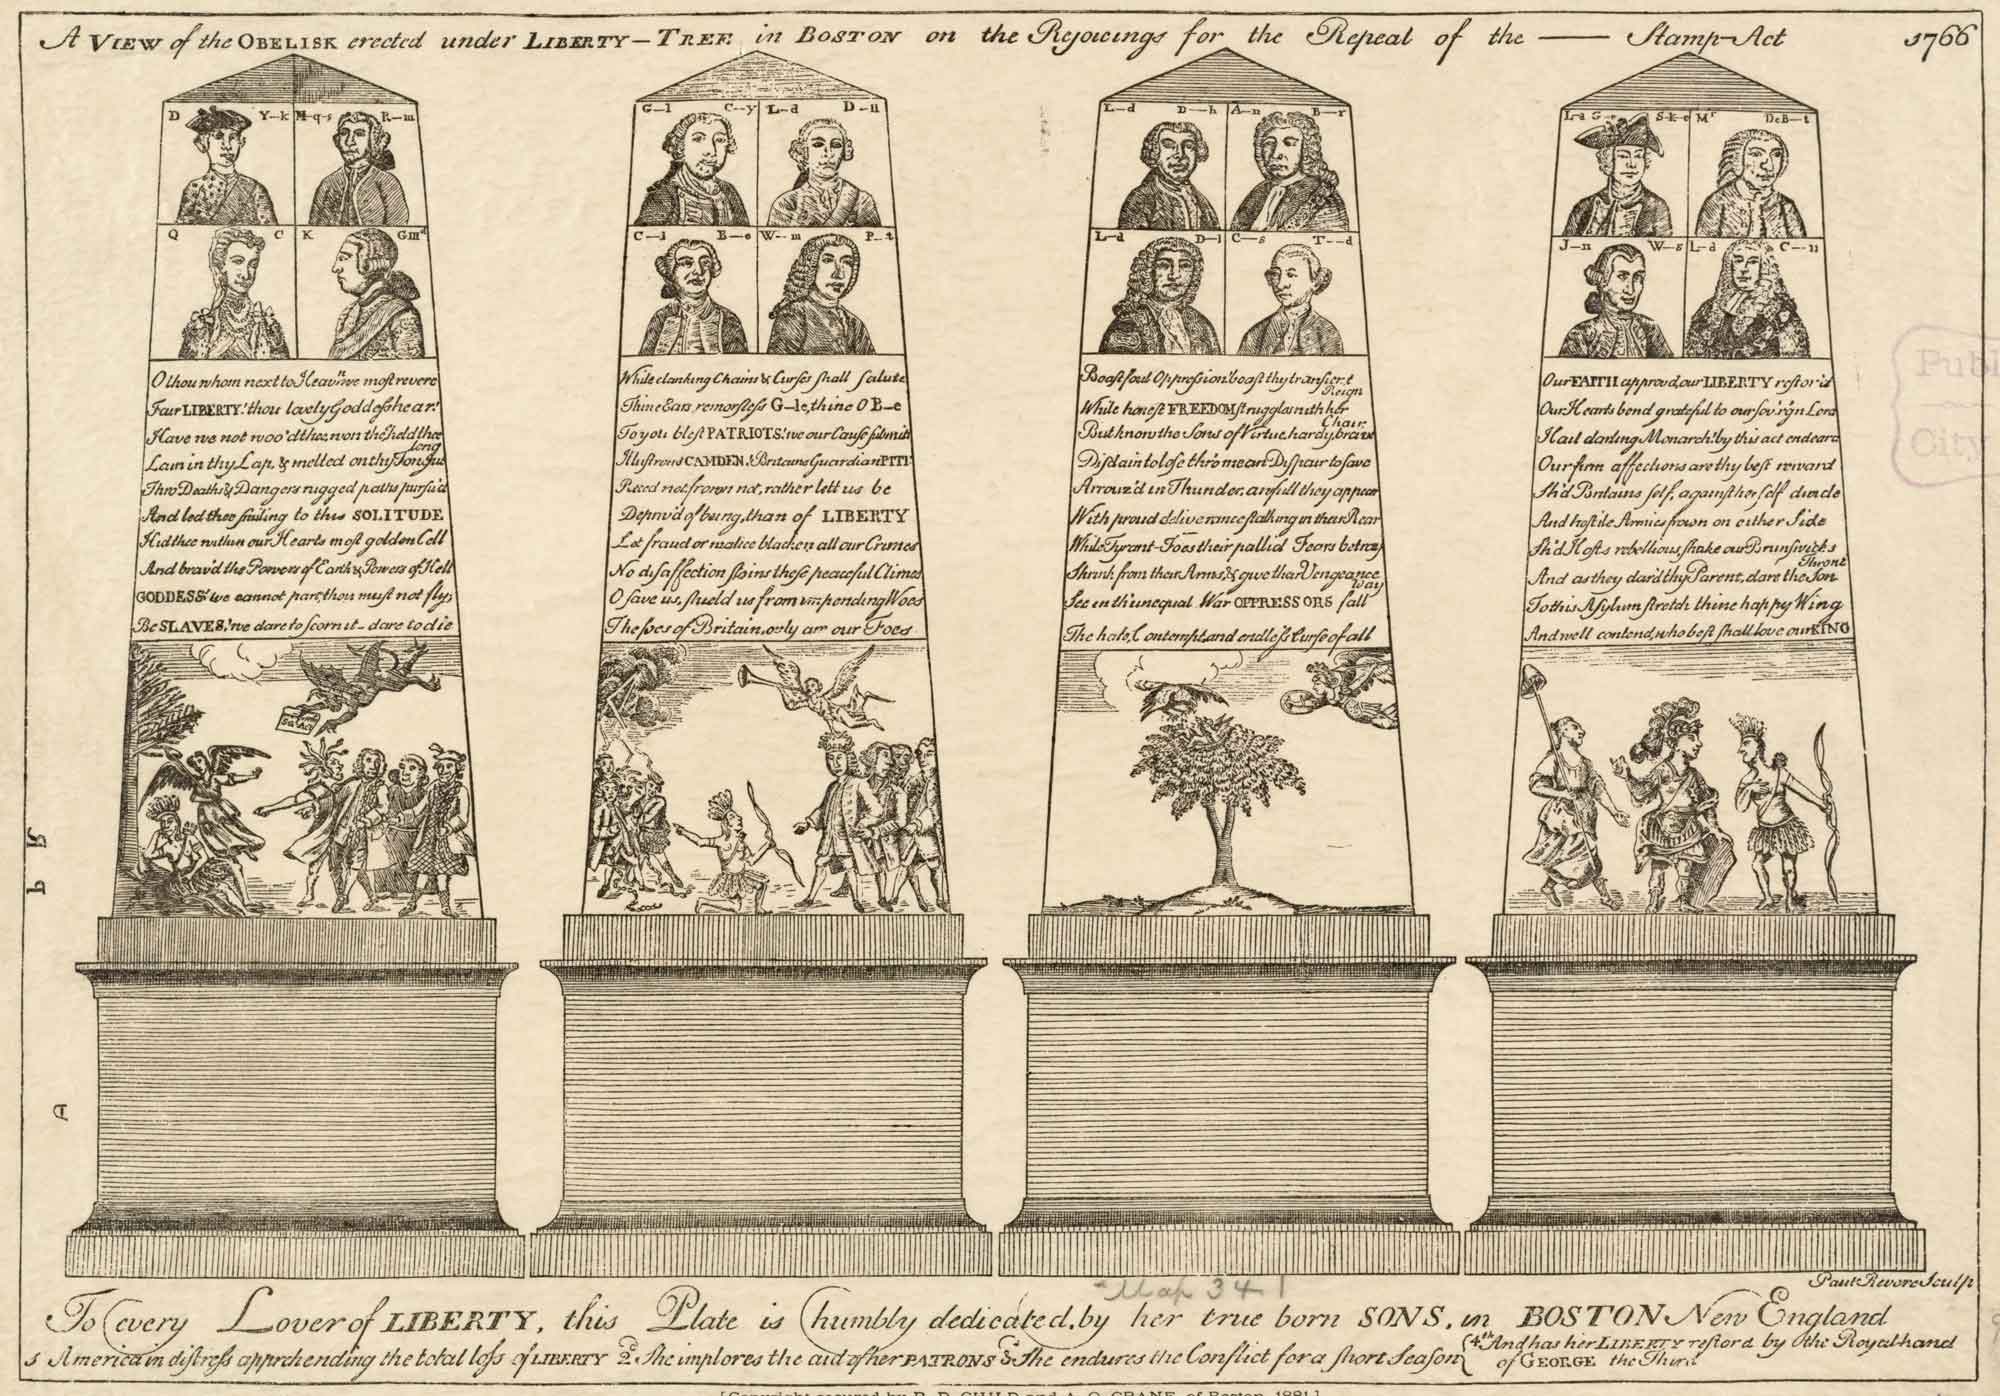 A VIEW of the OBELISK erected under LIBERTY-TREE in BOSTON on the Rejoicings for the Repeal of the —— Stamp-Act 1766
D Y-k M-q-s R-m
Q C K G III d
O thou whom next to Heav'n we most revere
Fair LIBERTY! thou lovely Goddess hear!
Have we not woo'd thee, won thee, held thee long
Lain in thy Lap, & melted on thy Tongue
Thro Deaths & Dangers rugged paths pursu'd
And led thee smiling to this SOLITUDE
Hid thee within our Hearts most golden Cell
And brav'd the Powers of Earth & Powers of Hell
GODDESS! we cannot part, thou must not fly,
Be SLAVES! we dare to scorn it- dare to die
G-l C-y L-d D-ll
C-l B-e W--m P-t
While clanking Chains & Curses shall salute
Thine Ears, remorsless G-le, thine O B-e
To you blest PATRIOTS! we our Cause submit
Illustrous CAMDEN, Britains Guardian PITT
Reced not, frown not, rather lett us be
Depriv'd of being, than of LIBERTY
Let fraud or malice blacken all our Crimes
No disaffection stains these peaceful Climes
O save us, shield us from impending Woes
The foes of Britain, only are our Foes
L-d D-h A-n B-r
L-d D-l C-s T--d
Boast foul Oppression! boast thy transient Reign
While honest FREEDOM struggles with her Chair
But know the Sons of Virtue, hardy, brave
Disdain to lose thro' mean Dispair to save
Arrouz'd in Thunder, awfull they appear
With proud deliverance stalking in their Rear
While Tyrant-Foes their pallid Fears betray
Shrink from their Arms, & give their Vengeance way
See in th' unequal War OPPRESSORS fall
The hate, Contempt, and endless Curse of all
L-d G- S-k-e Mr DeB-t
J-n W-s L-d C-n
Our FAITH approv'd, our LIBERTY restor'd
Our Hearts bend grateful to our sov'r'gn Lord
Hail darling Monarch! by this act endear'd
Our firm affections are thy best reward
Sh'd Britains self, against herself divide
And hostile Armies frown on either Side
Sh'd Hosts rebellious, shake our Brunswick's Throne
And as they dar'd thy Parent, dare the Son
To this Asylum stretch thine happy Wing
And well contend, who best shall love our KING
Public
City
Map 34
Paul Revere Sculp
To every Lover of LIBERTY, this Plate is humbly dedicated, by her true born SONS, in BOSTON New England
1 America in distress apprehending the total loss of LIBERTY 2d She implores the aid of her PATRONS 3d She endures the Conflict for a short Season 4th And has her LIBERTY restord by the Royal hand of GEORGE the Third